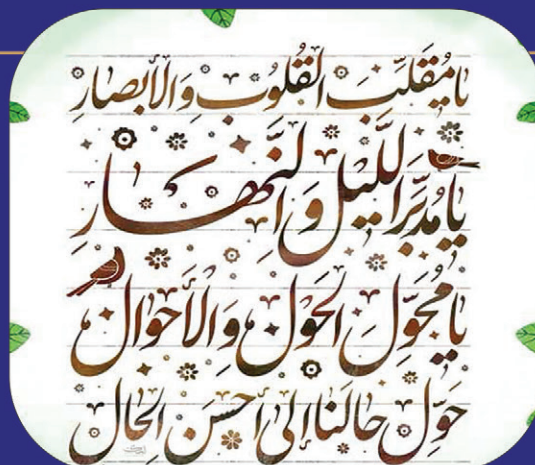 يَا مُقَلِّبَ القُلُوبِ وَالأَبْصَارِ
يَا مُدَبِّرَ اللَّيْلِ وَ النَّهَارِ
يَا مُحَوِّلَ الحَوْلِ وَ الأَحْوَالِ
حَوِّلْ حَالَنَا إِلَى أَحْسَنِ الحَالِ